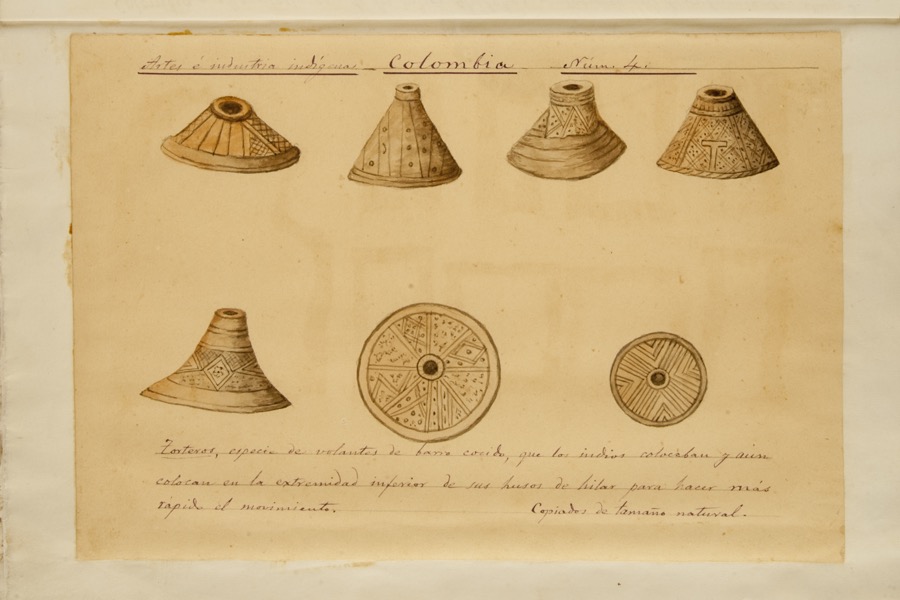 Artes é industria indígenas Colombia Núm. 4.
Torteros, especie de volantes de barro cocido, que los indios colocaban y aún
colocan en la extremidad inferior de sus husos de hilar para hacer más
rápido el movimiento. Copiados de tamaño natural.